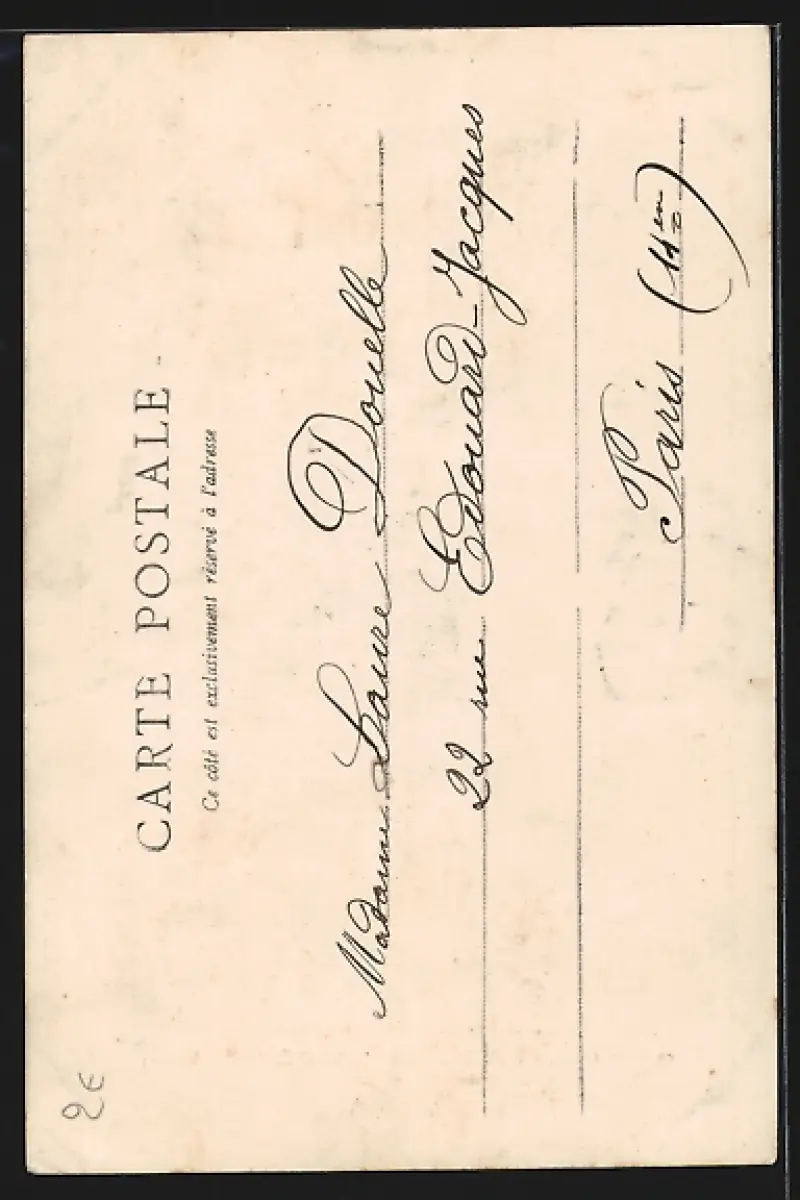 CARTE POSTALE
Ce côté est exclusivement réservé à l'adresse
Madame Laure Douelle
22 rue Edouard-Jacques
Paris (14en)
2€